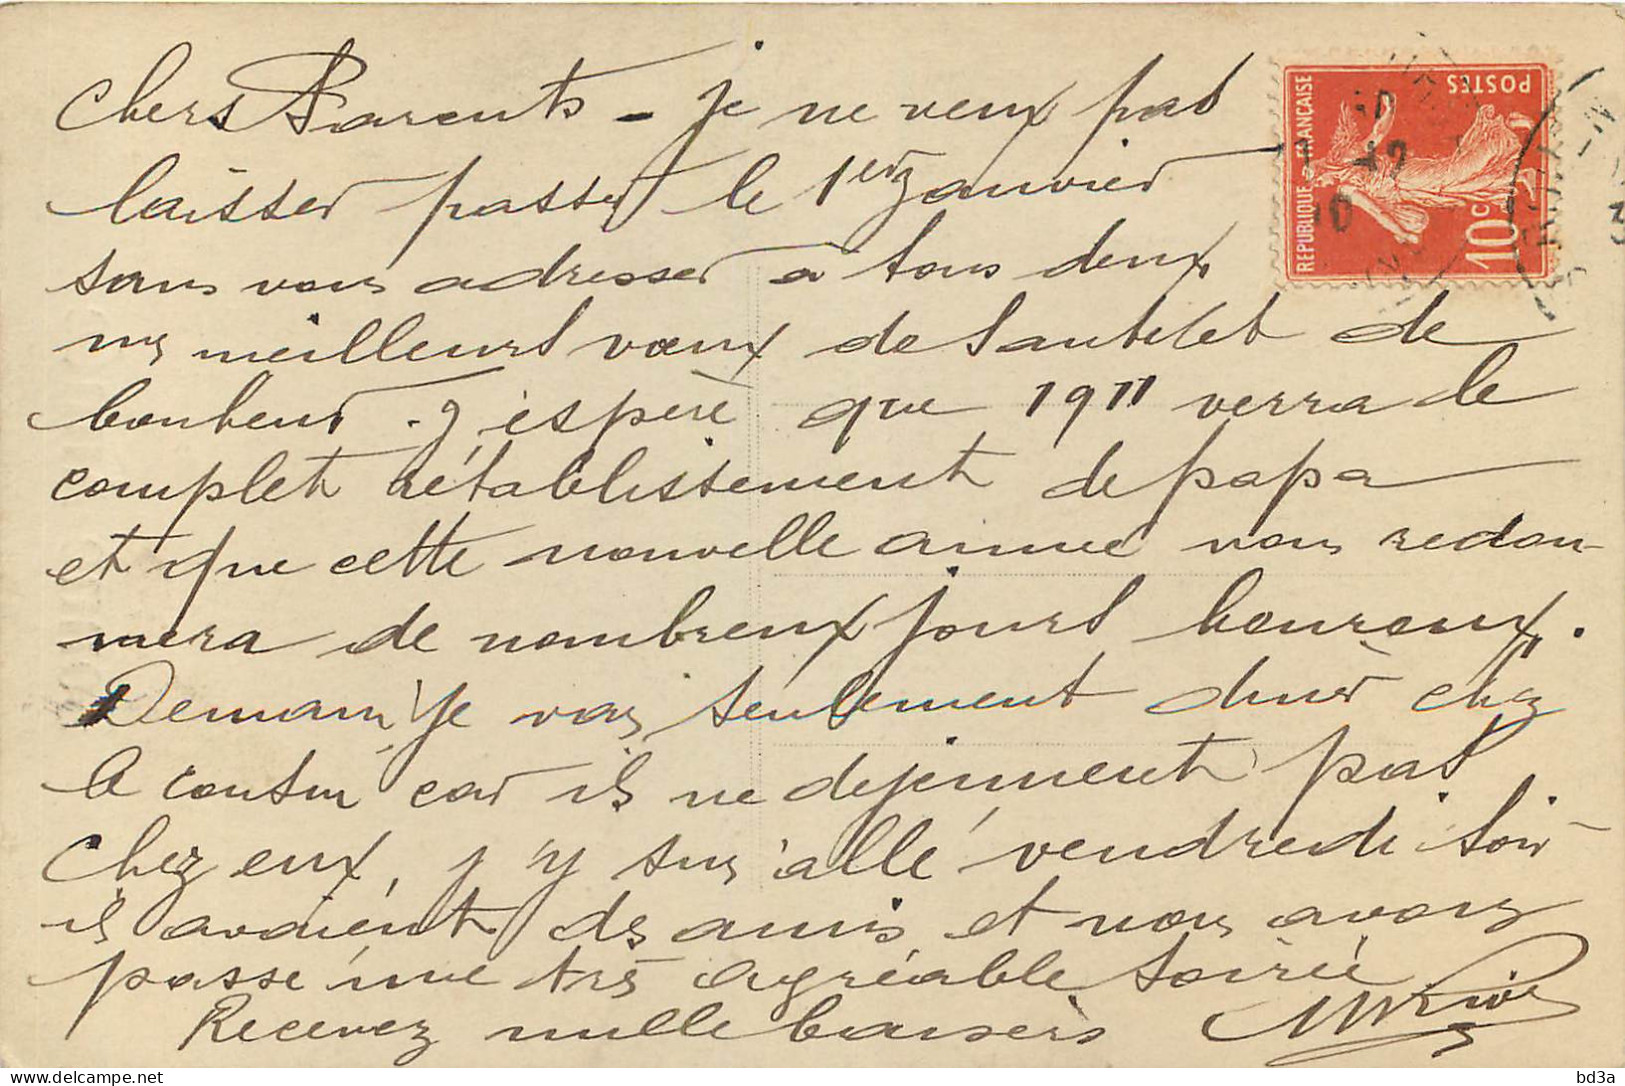 Chers Parents - je ne veux pas
laisser passer le 1er Janvier
sans vous adresser à tous deux
mes meilleurs vœux de Santé et de
bonheur. J'espère que 1911 verra le
complet rétablissement de papa
et que cette nouvelle année vous redon-
nera de nombreux jours heureux.
Demain je vais seulement diner chez
le cousin car ils ne dejeunnent pas
chez eux, j'y suis allé vendredi soir
ils avaient des amis et nous avons
passé une très agréable soirée
Recevez mille baisers
REPUBLIQUE FRANÇAISE
POSTES
10c
delcampe.net
bd3a